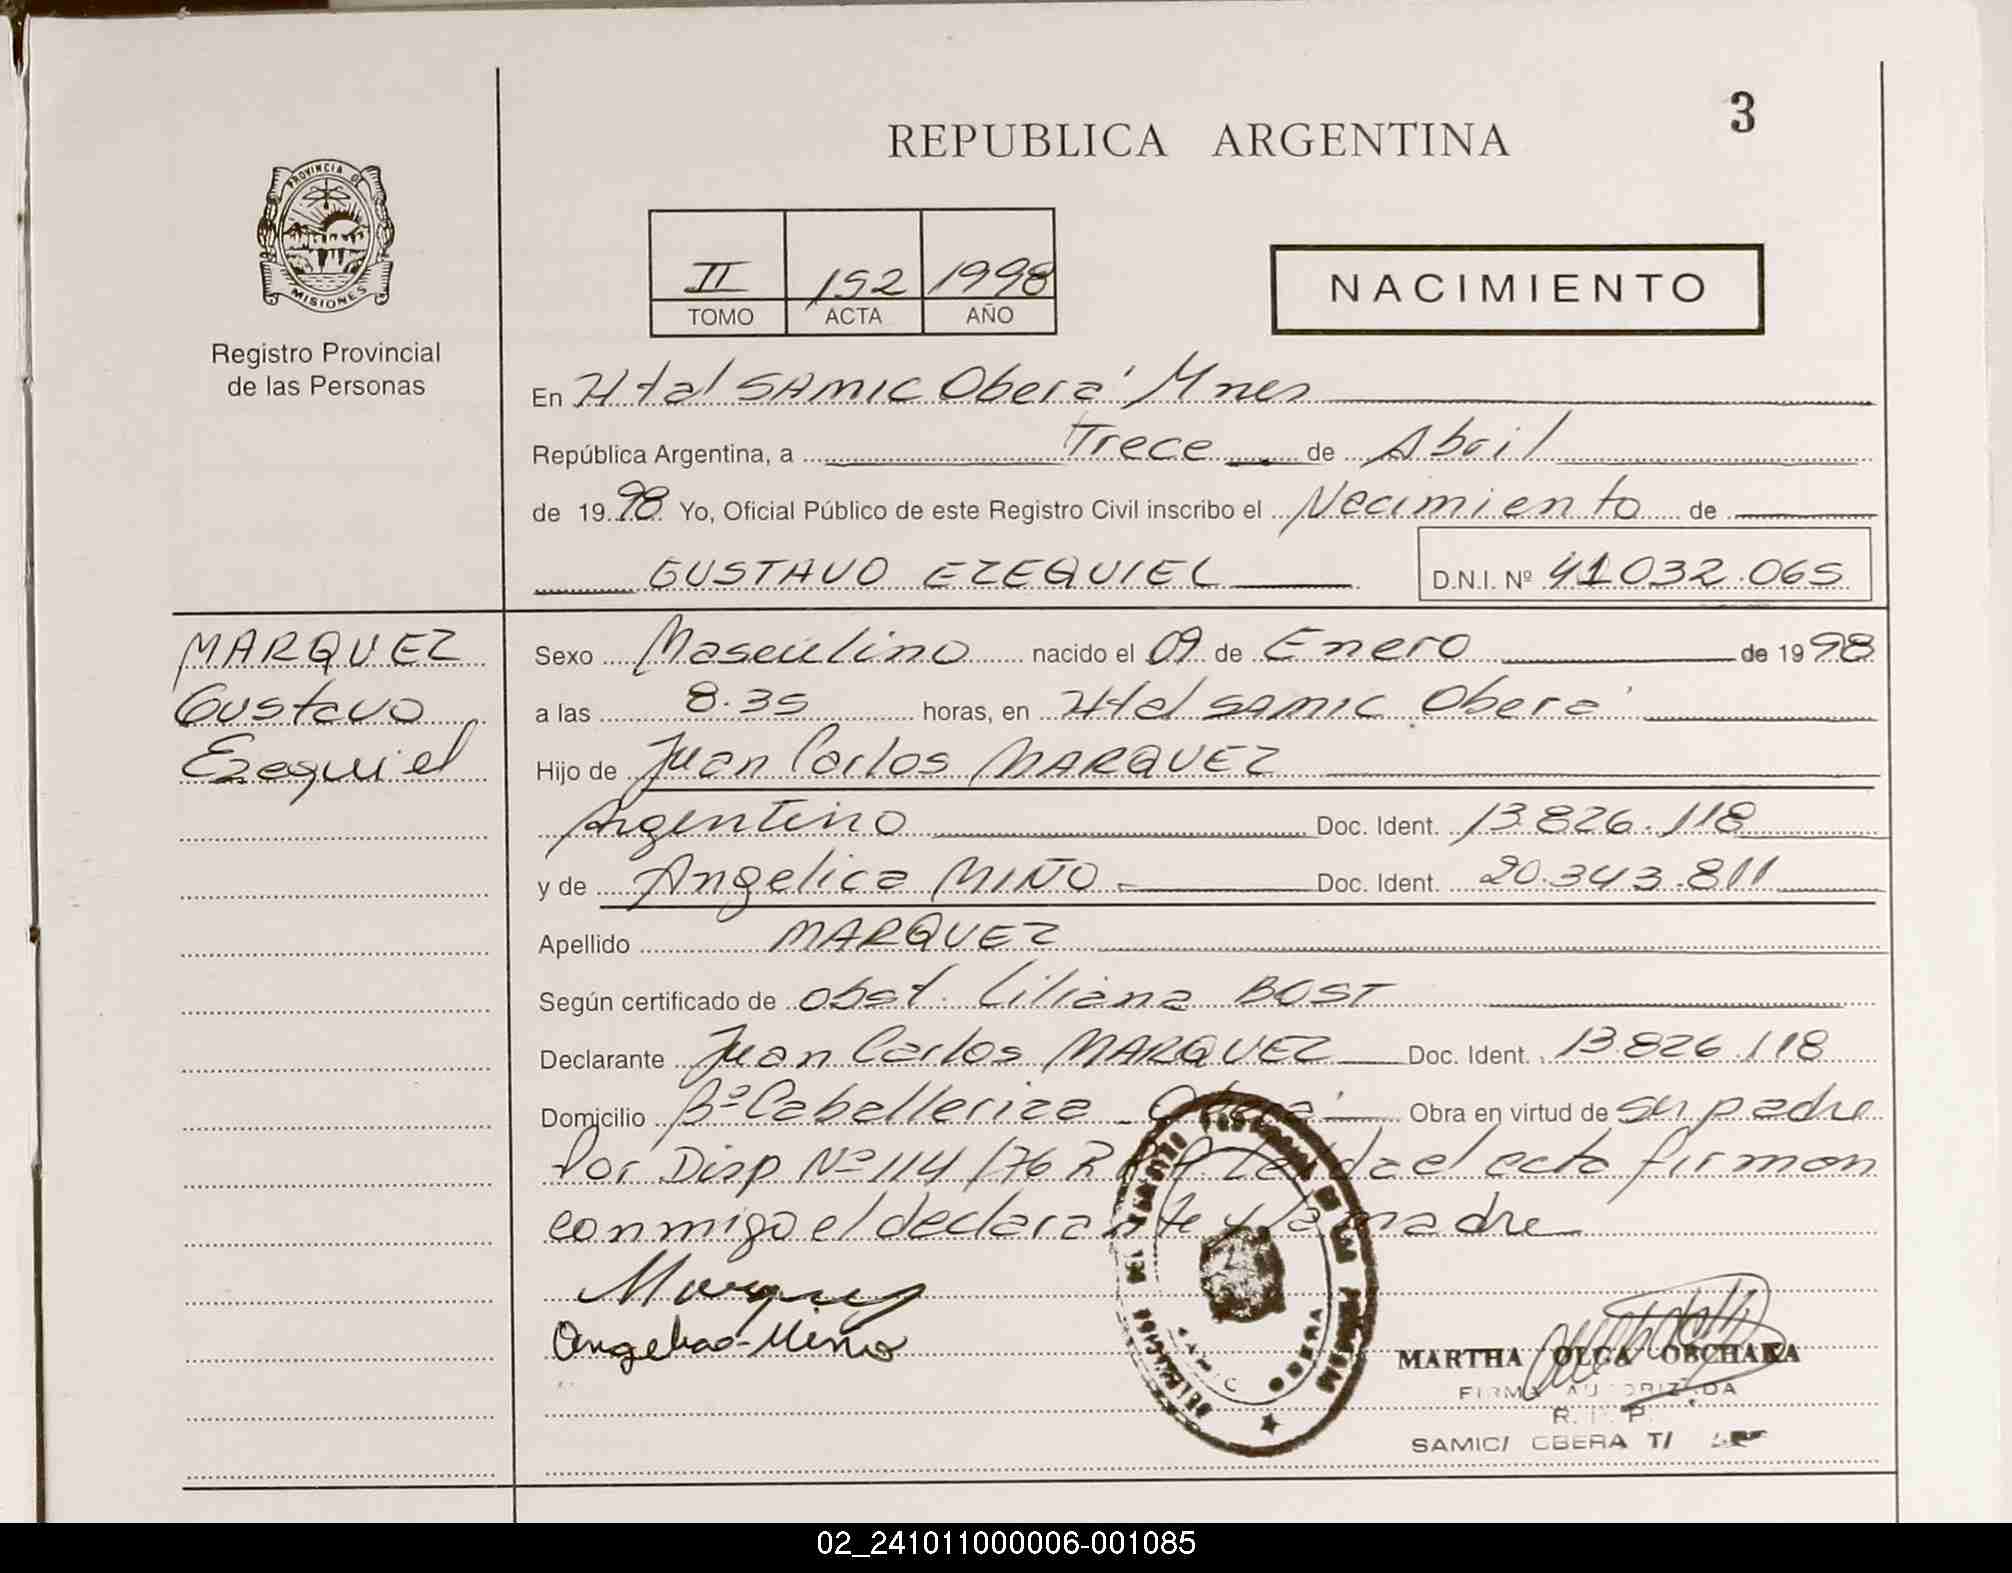 3
REPUBLICA ARGENTINA
PROVINCIA DE
MISIONES
Registro Provincial
de las Personas
II 152 1998
TOMO ACTA AÑO
NACIMIENTO
En Htal SAMIC Oberá Mnes
República Argentina, a Trece de Abril
de 1998 Yo, Oficial Público de este Registro Civil inscribo el Nacimiento de
GUSTAVO EZEQUIEL D.N.I. Nº 41.032.065
MARQUEZ
Gustavo
Ezequiel
Sexo Masculino nacido el 09 de Enero de 1998
a las 8.35 horas, en Htal SAMIC Oberá
Hijo de Juan Carlos MARQUEZ
Argentino Doc. Ident. 13.826.118
y de Angelica MIÑO Doc. Ident. 20.343.811
Apellido MARQUEZ
Según certificado de obst. Liliana BOST
Declarante Juan Carlos MARQUEZ Doc. Ident. 13.826.118
Domicilio Bº Caballeriza Oberá Obra en virtud de su padre
Por Disp Nº 114/76 Leída el acta firman
conmigo el declarante y la madre
Marquez
Angelica Miño
DELEGACION DEL REGISTRO PROVINCIAL DE LAS PERSONAS
SAMIC OBERA
MARTHA OLGA OBCHARA
FIRMA AUTORIZADA
R. P.
SAMIC/ OBERA T/
02_241011000006-001085